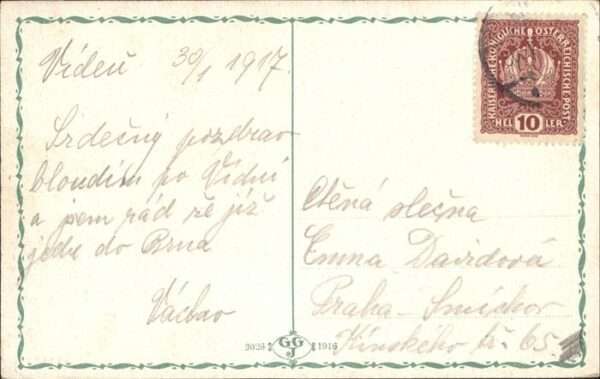 Vídeň 30/1 1917.
Srdečný pozdrav
bloudím po Vídni
a jsem rád že již
jedu do Brna
Václav
KAISERLICHE KÖNIGLICHE ÖSTERREICHISCHE POST
HEL 10 LER
Ctěná slečna
Emma Davidová
Praha-Smíchov
Kinského tř. 65
2023 GG 1916